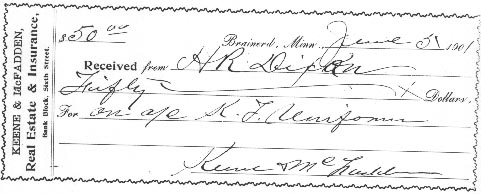 KEENE & McFADDEN,
Real Estate & Insurance,
Bank Block, Sixth Street.
$50.00 Brainerd, Minn. June 5 1901
Received from H R Dixon
Fifty x Dollars,
For on a/c K. F. Uniforms
Keene & McFadden